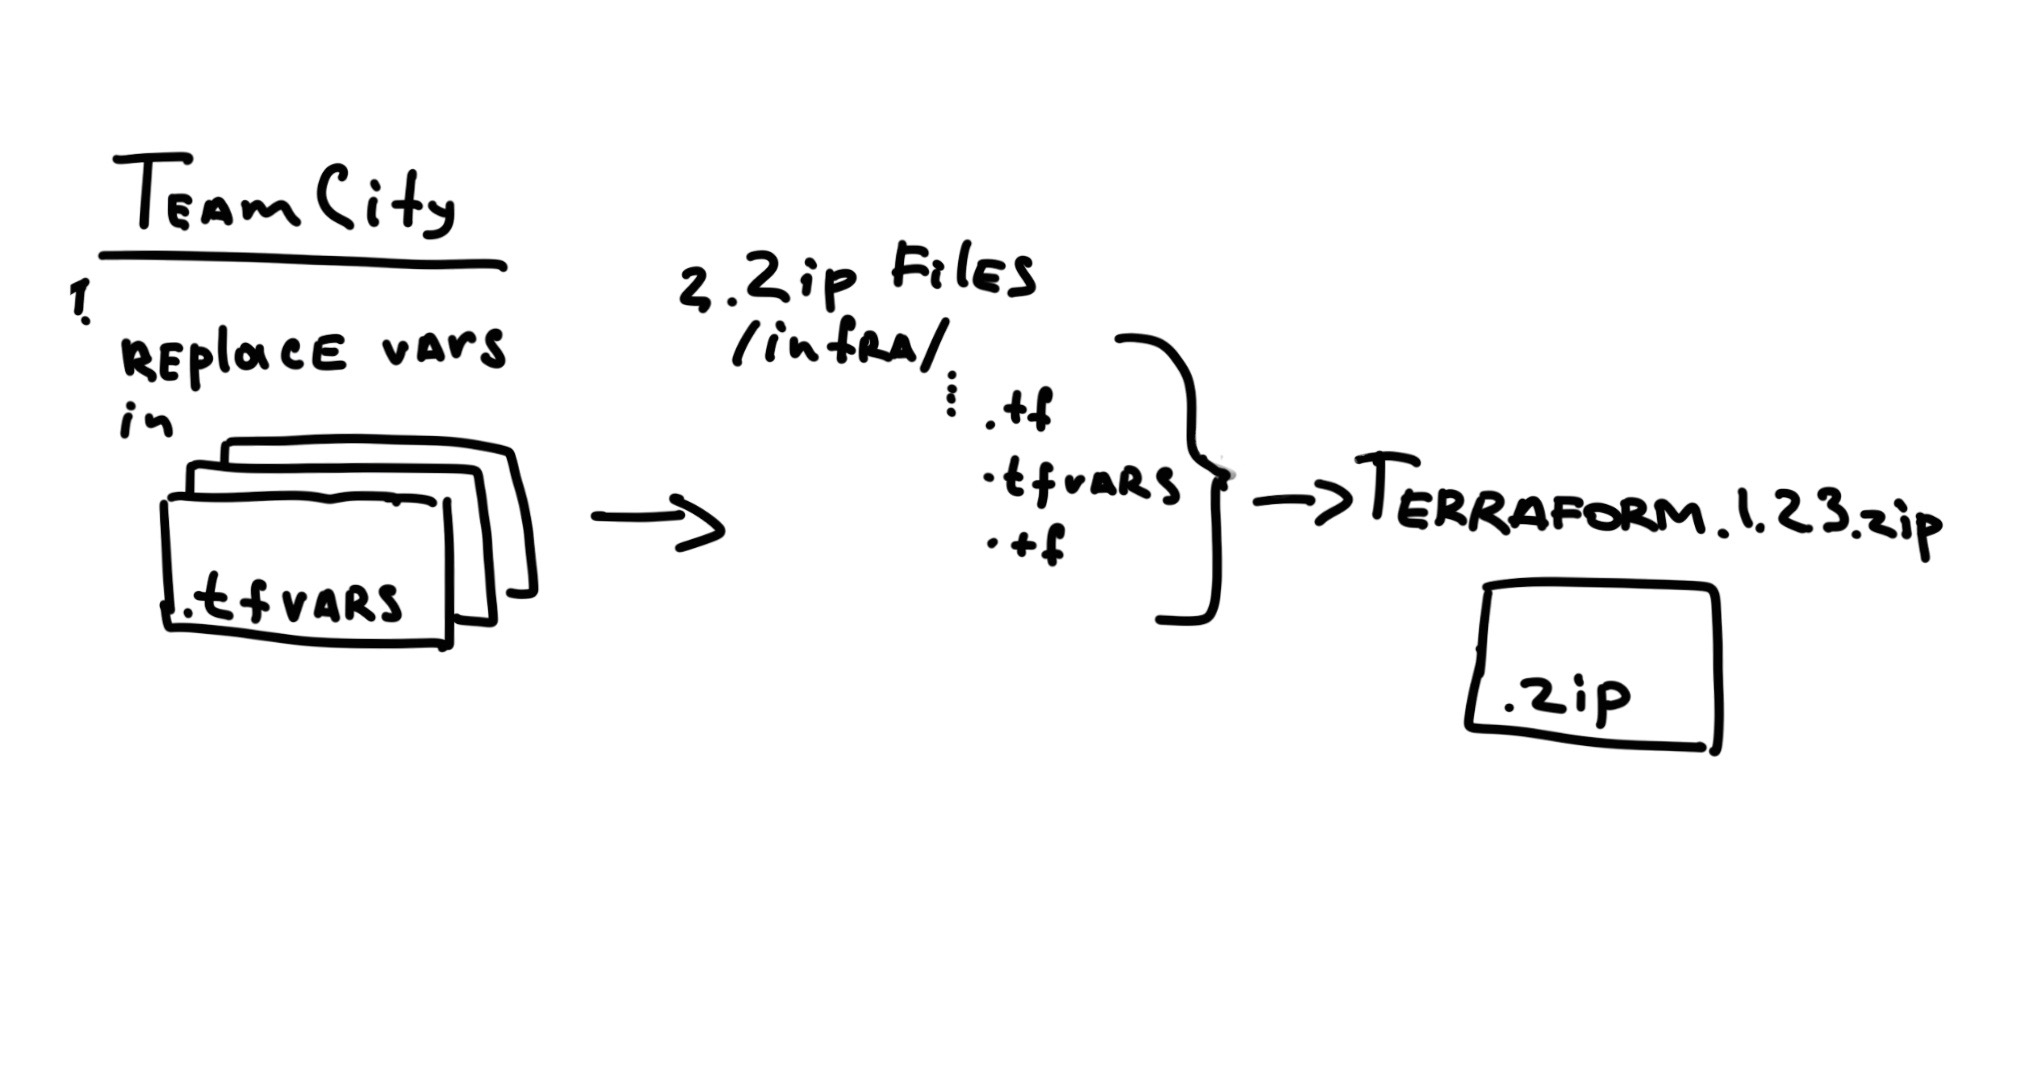 TEAm City
1.
REplacE vARS
in
.tfvARS
2. Zip FilES
/infRA/
.tf
.tfvARS
.tf
TERRAFORM.1.23.zip
.zip